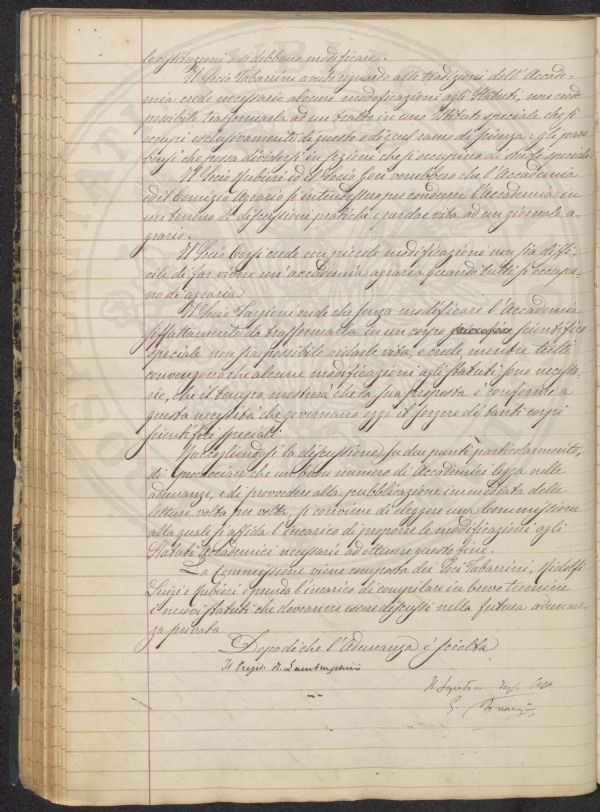 le istituzioni o si debbano modificare.
Il Socio Tabarrini avuto riguardo alle tradizioni dell'Accade-
mia crede necessarie alcune modificazioni agli Statuti, non crede
possibile trasformarla ad un tratto in uno Istituto speciale che si
occupi esclusivamente di questo o di quel ramo di scienza: gli pare
bensì che possa dividersi in sezioni che si occupino di studi speciali.
Il Socio Rubieri ed il Socio Gori vorrebbero che l'Accademia
ed il Comizio Agrario si intendessero per condurre l'Accademia in
un terreno di discussioni pratiche e per dar vita ad un giornale a-
grario.
Il Socio Corsi crede con piccole modificazioni non sia diffi-
cile di far vivere un'accademia agraria quando tutti si occupa-
no di agraria
Il Socio Targioni crede che senza modificare l'Accademia
siffattamente da trasformarla in un corpo scientifico
speciale non sia possibile ridarle vita, e crede mentre tutti
convengono che alcune modificazioni agli statuti sono necessa-
rie, che il tempo mostrerà che la sua proposta è conforme a
questa necessità che governano oggi il sorgere di tanti corpi
scientifici speciali.
Raccogliendosi la discussione su due punti particolarmente,
di procacciare che un buon numero di Accademici legga nelle
adunanze, e di provvedere alla pubblicazione immediata delle
letture volta per volta, si conviene di eleggere una Commissione
alla quale si affida l'incarico di proporre le modificazioni agli
Statuti Accademici necessarie ad ottenere questo fine.
La Commissione viene composta dei Soci Tabarrini, Ridolfi
Luigi e Rubieri e prenda l'incarico di compilare in breve termine
i nuovi statuti che dovranno essere discussi nella futura adunan-
za privata
Dopo di che l'Adunanza è sciolta
Il Presid. R. Lambruschini
Il Segretario degli Atti